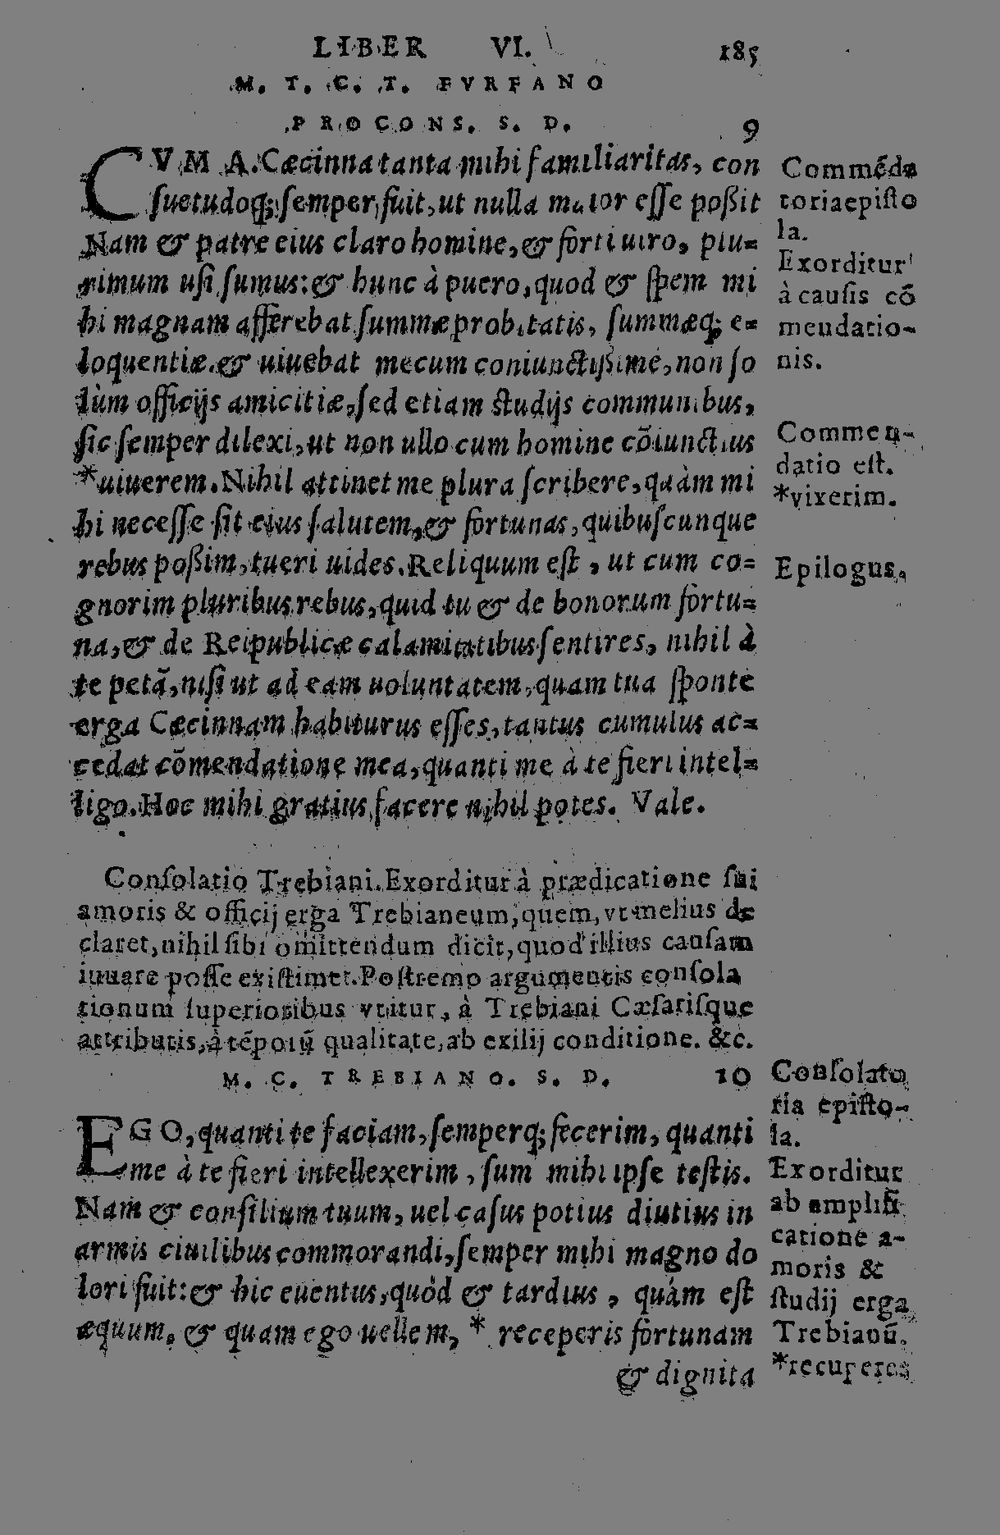 LIBER VI. 185
M. T. C. T. FVRFANO
PROCONS. S. D. 9
CVM A. Cæcinna tanta mihi familiaritas, con
suetudoq; semper fuit, ut nulla maior esse poßit
Nam & patre eius claro homine, & forti uiro, plu=
rimum usi sumus: & hunc à puero, quod & spem mi
hi magnam afferebat summæ probitatis, summæq; e=
loquentiæ. & uiuebat mecum coniunctißimè, non so
lùm officijs amicitiæ, sed etiam studijs communibus,
sic semper dilexi, ut non ullo cum homine cõiunctius
*uiuerem. Nihil attinet me plura scribere, quàm mi
hi necesse sit eius salutem, & fortunas, quibuscunque
rebus poßim, tueri uides. Reliquum est, ut cum co=
gnorim pluribus rebus, quid tu & de bonorum fortu=
na, & de Reipublicæ calamitatibus sentires, nihil à
te petã, nisi ut ad eam uoluntatem, quam tua sponte
erga Cæcinnam habiturus esses, tantus cumulus ac=
cedat cõmendatione mea, quanti me à te fieri intel=
ligo. Hoc mihi gratius facere nihil potes. Vale.
Commẽda
toria episto
la.
Exorditur
à causis cõ
mendatio-
nis.
Commen-
datio est.
*vixerim.
Epilogus.
Consolatio Trebiani. Exorditur à prædicatione sui
amoris & officij erga Trebianeum, quem, vt melius de
claret, nihil sibi omittendum dicit, quod illius causam
iuuare posse existimet. Postremo argumentis consola
tionum superioribus vtitur, à Trebiani Cæsarisque
attributis, à tẽporũ qualitate, ab exilij conditione. &c.
M. C. TREBIANO. S. D. 10
EGO, quanti te faciam, semperq; fecerim, quanti
me à te fieri intellexerim, sum mihi ipse testis.
Nam & consilium tuum, uel casus potius diutius in
armis ciuilibus commorandi, semper mihi magno do
lori fuit: & hic euentus, quòd & tardius, quàm est
æquum, & quam ego uellem, * receperis fortunam
& dignita
Consolato
ria episto-
la.
Exorditur
ab amplifi
catione a-
moris &
studij erga
Trebianũ.
*recuperes